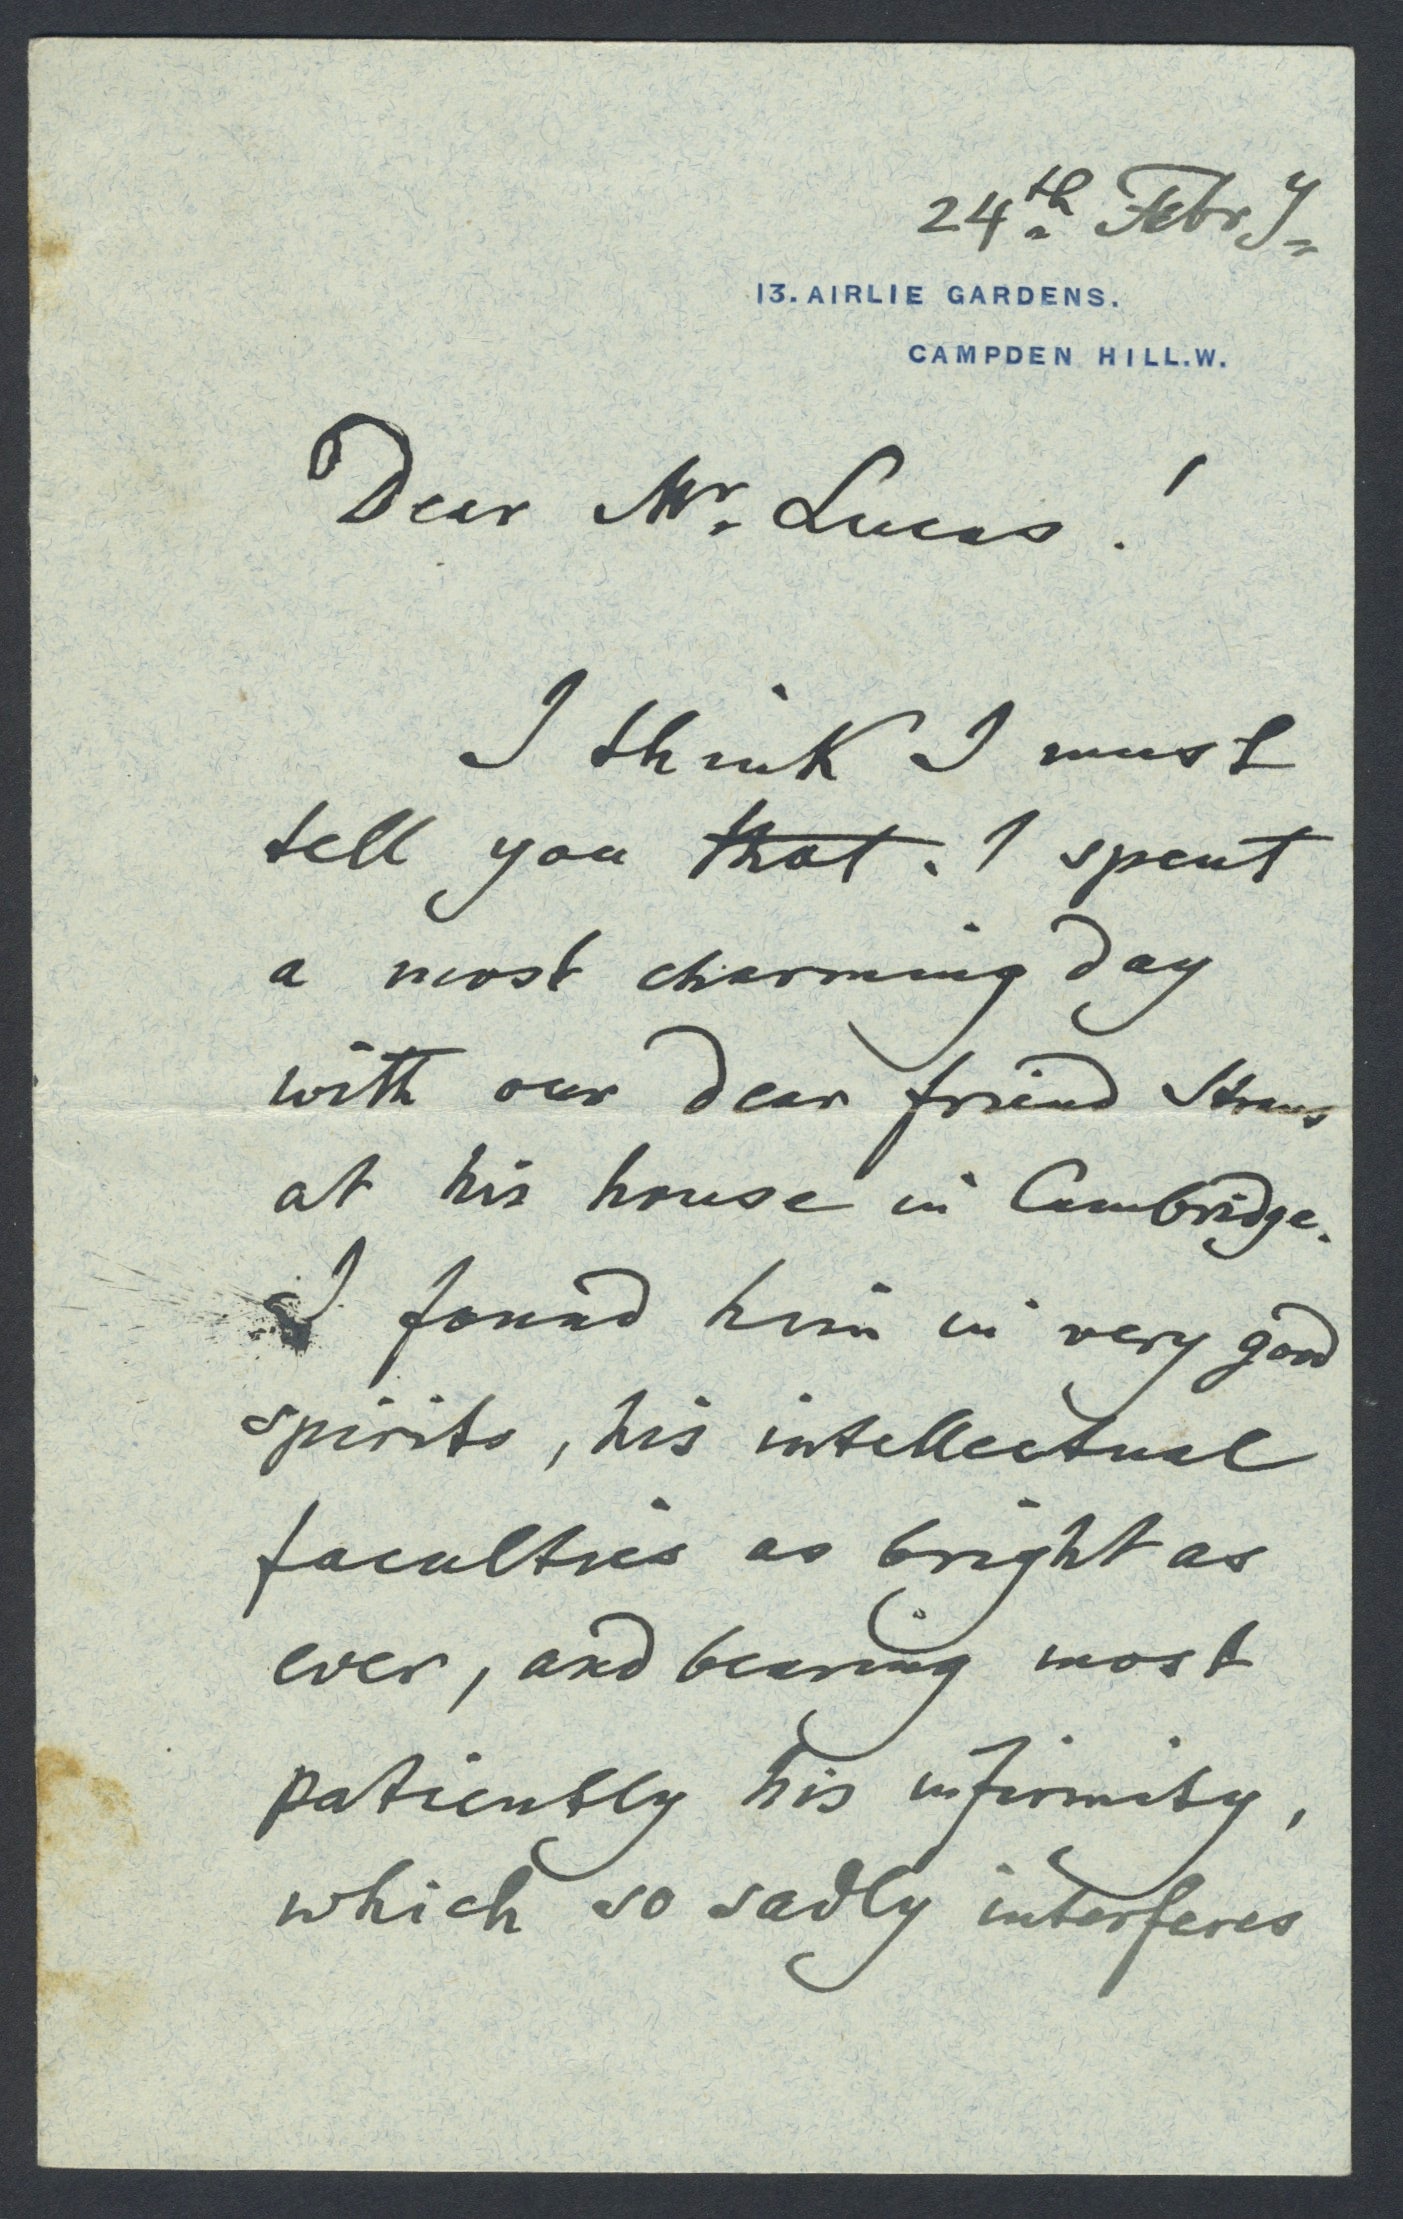 24th Febry
13. AIRLIE GARDENS.
CAMPDEN HILL.W.
Dear Mr. Lucas!
I think I must
tell you that. I spent
a most charming day
with our dear friend Straus
at his house in Cambridge.
I found him in very good
spirits, his intellectual
faculties as bright as
ever, and bearing most
patiently his infirmity,
which so sadly interferes